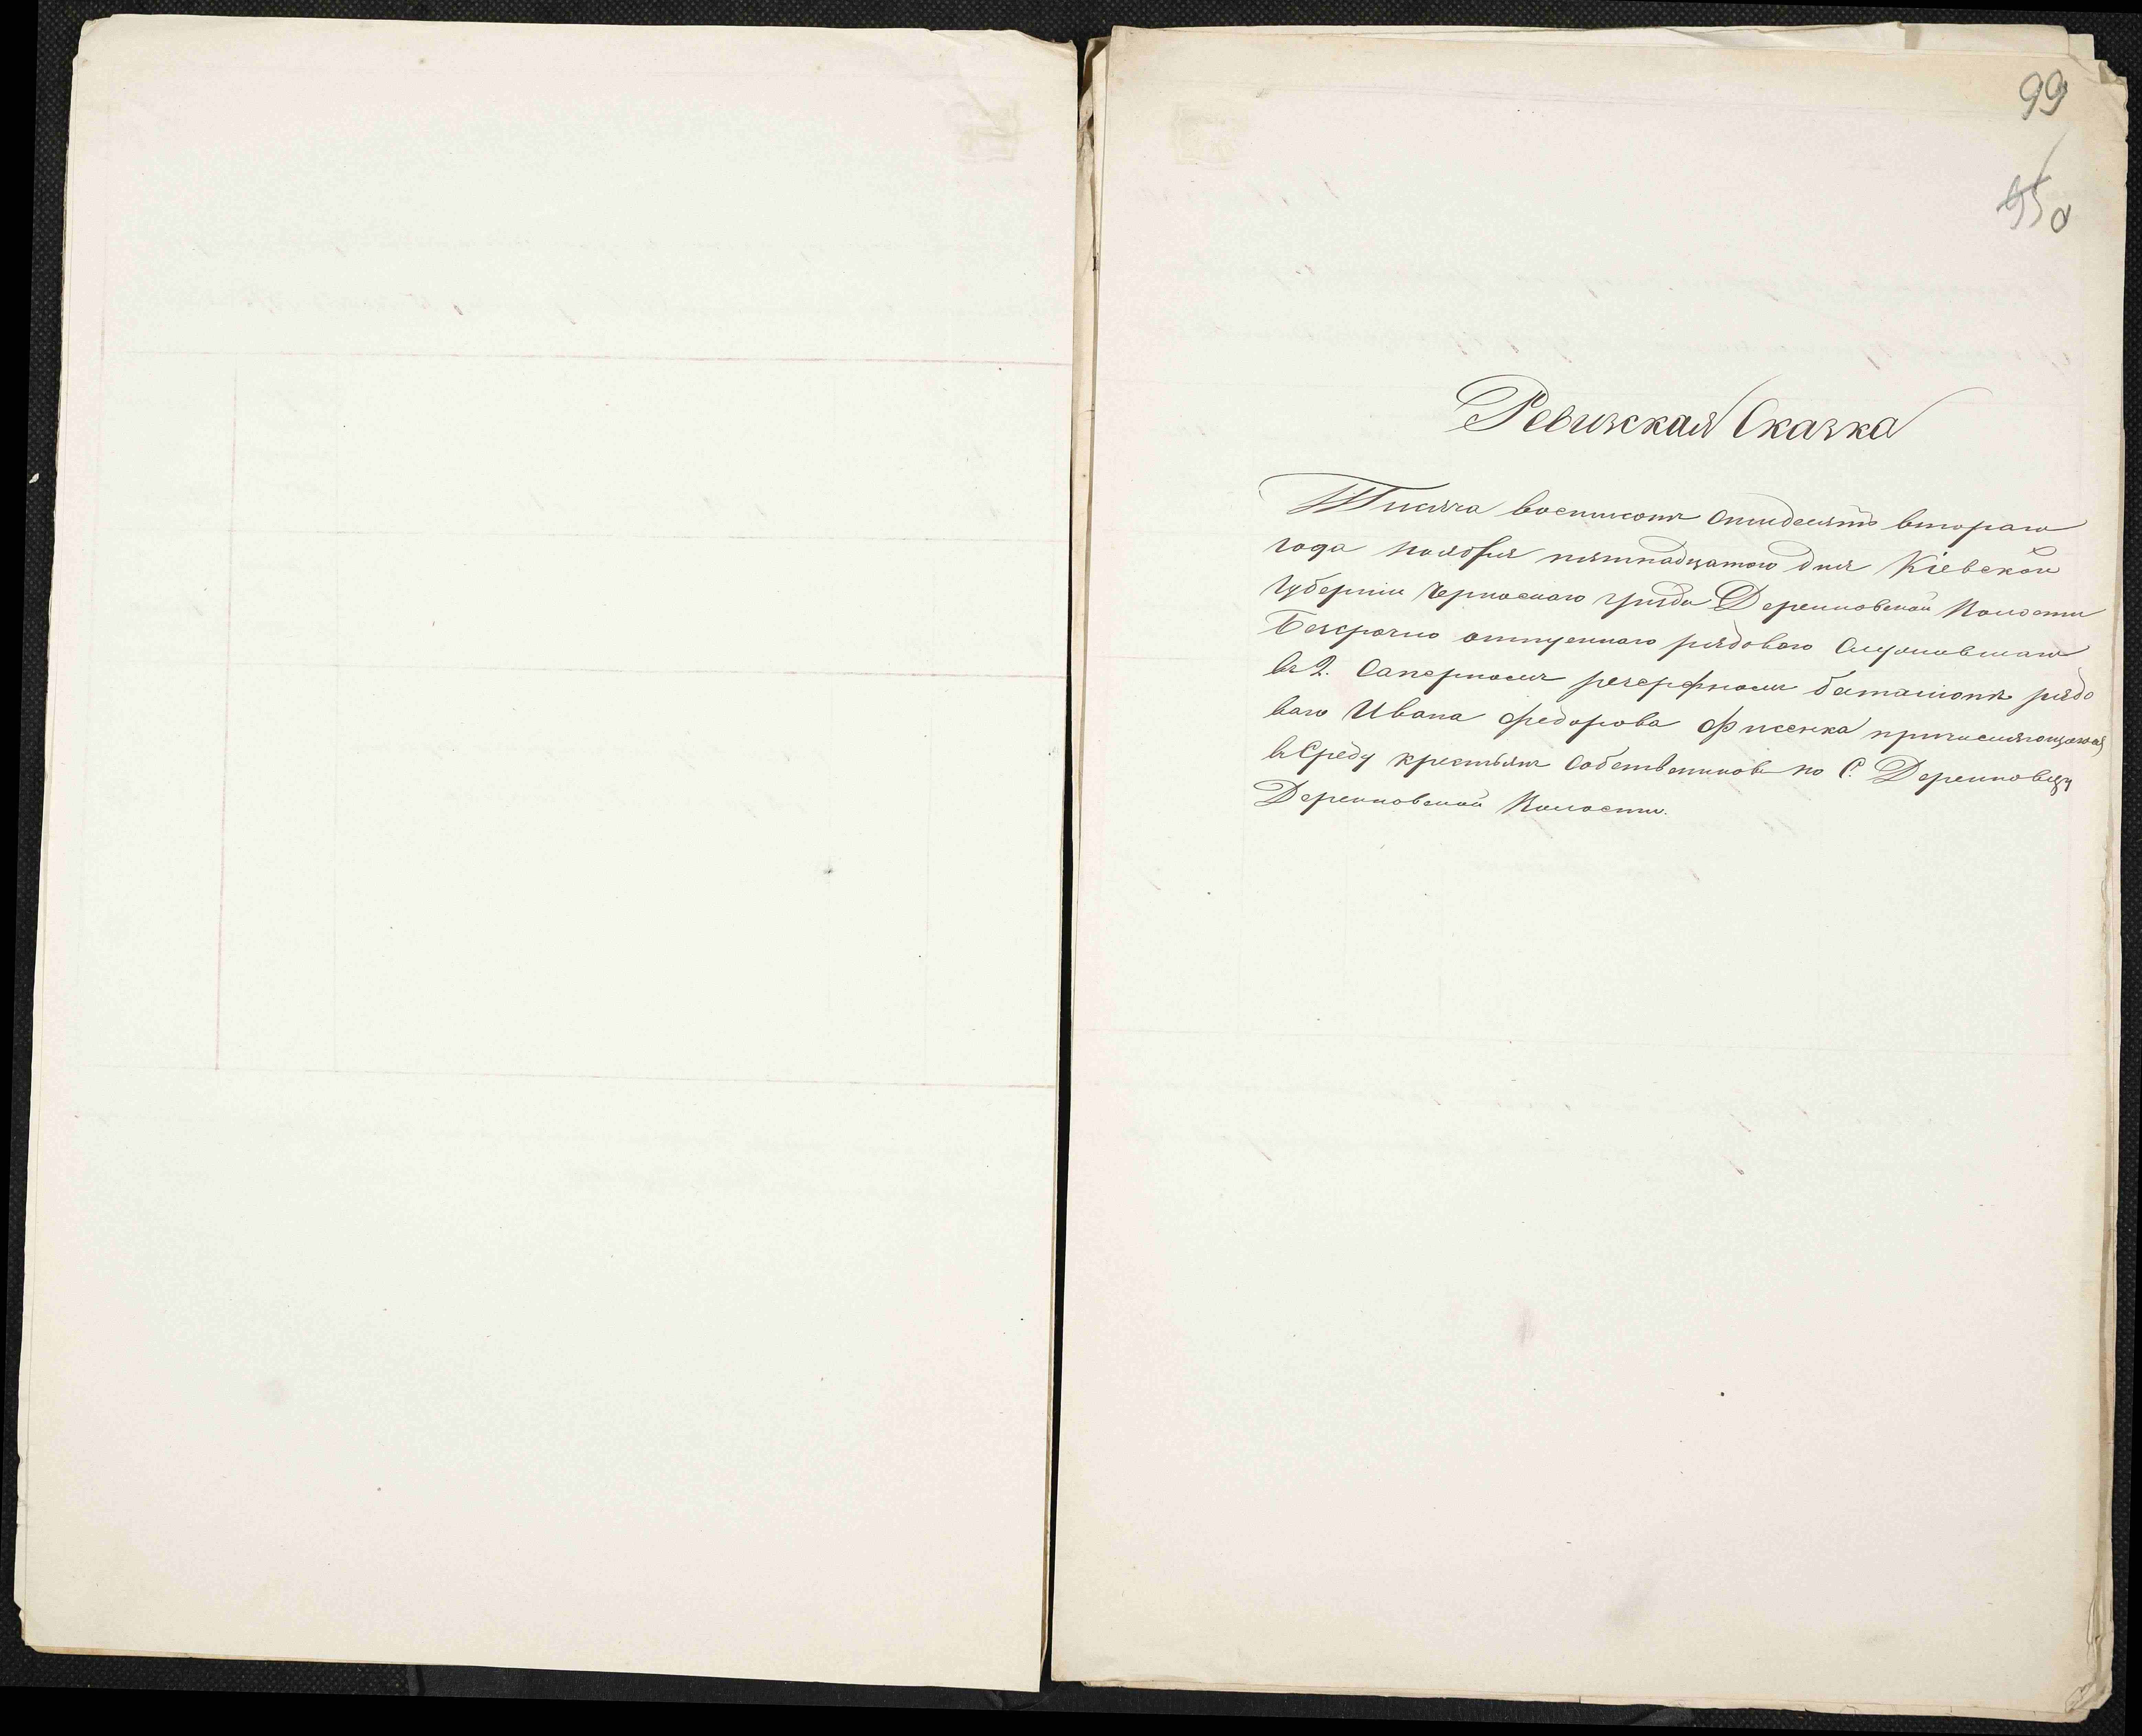 99
95
Ревизская Сказка
Тисяча восемьсотъ семдесятъ втораго
года ноября пятнадцатого дня Кіевской
Губерніи Черкаскаго уѣзда Деренковской Волости
Безсрочно отпущеннаго рядового Служившаго
въ 2. Саперномъ резерфномъ баталионѣ рядо
ваго Ивана Федорова Фисенка причисляющагося
въ Среду крестьянъ Собственниковъ по С. Деренковцу
Деренковской Волости.